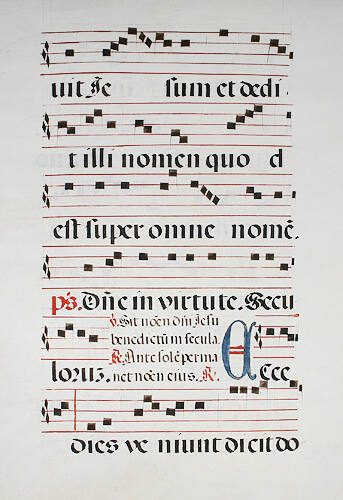 uit Je sum et dedi
t illi nomen quod
est super omne nomē.
ps. Dñe in virtute. Secu
℣. Sit nōen dñi Jesu
benedictum in secula.
℟. Ante solē perma
net nōen eius. ℟.
loruz. E Ecce
dies ve niunt dicit do